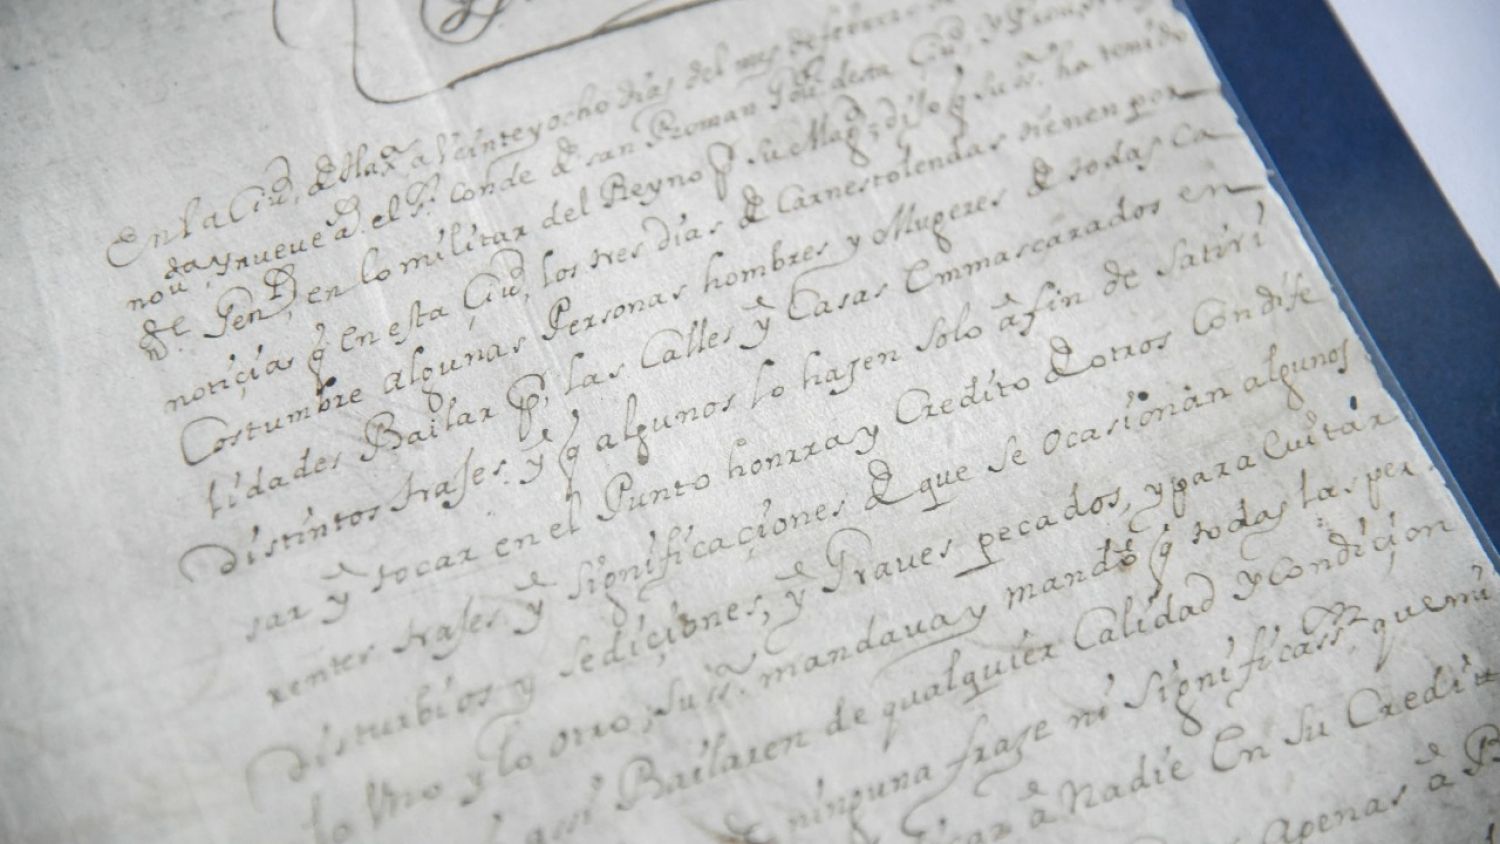 En la Ciud, de Mlaga a Veinte y ocho dias del mes de febrero de
nouda y nueve ad el Sr. Conde de san Roman Gour desta Ciud, y
Gen, en lo militar del Reyno p su Magd; dijo q su sa. ha tenido
noticias q en esta Ciud, los tres dias de Carnestolendas tienen por
Costumbre algunas Personas hombres y Mugeres de todas ca
lidades Bailar pr, las Calles y Casas Emmascarados en
distintos trajes. y q algunos lo hazen solo a fin de Satiri
sar y tocar en el Punto honrra y Credito de otros Con dife
rentes trajes y significaçiones de que se ocasionan algunos
disturbios y sediçiones, y Graves pecados, y para Evitar
lo Uno y lo otro, su sa. mandava y mando q todas las per
assi Bailaren de qualquier Calidad y Condiçion
de ninguna fraze ni significass. que mu
a Nadie En su Credito
Apenas a